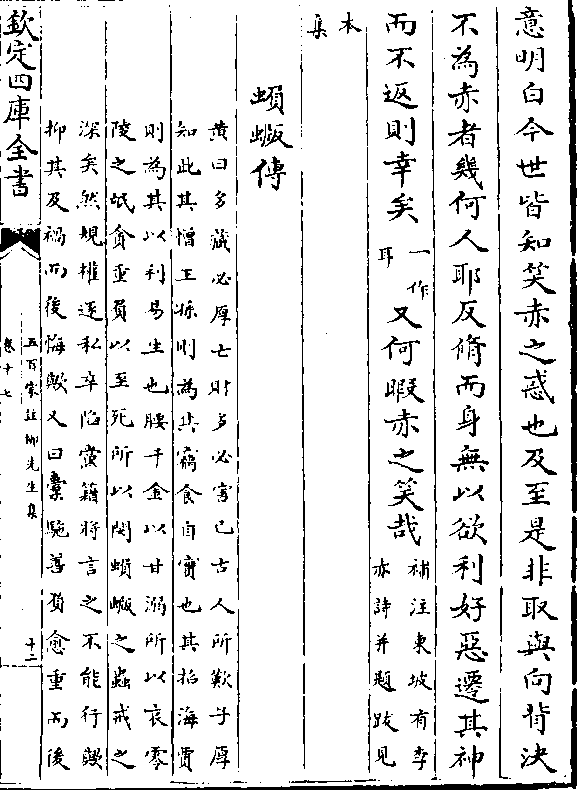 意明白今世皆知笑赤之惑也及至是非取與向背決
不為赤者幾何人耶反脩而身無以欲利好惡遷其神
而不返則幸矣一作耳又何暇赤之笑哉補注東坡有李赤詩并題跋見
本集
蝜蝂傳
黄曰多藏必厚亡財多必害己古人所歎子厚
知此其憎王孫則為其竊食自實也其招海賈
則為其以利易生也腰千金以甘溺所以哀零
陵之氓貪重負以至死所以閔蝜蝂之蟲戒之
深矣然規權逐私卒陷黨籍將言之不能行歟
抑其及禍而後悔歟又曰橐駞善負愈重而後
欽定四庫全書
五百家註柳先生集
卷十七
十二